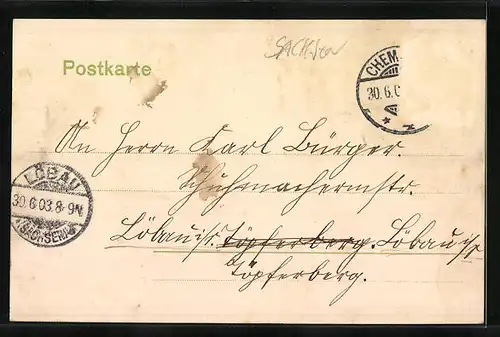 SACHSen
Postkarte
CHEM
30.6.0
An Herrn Karl Bürger.
Schuhmachermstr.
LÖBAU
30.6.03.8-9N.
(SACHSEN)
Löbau i/S. Töpferberg. Löbau i/S
Töpferberg.